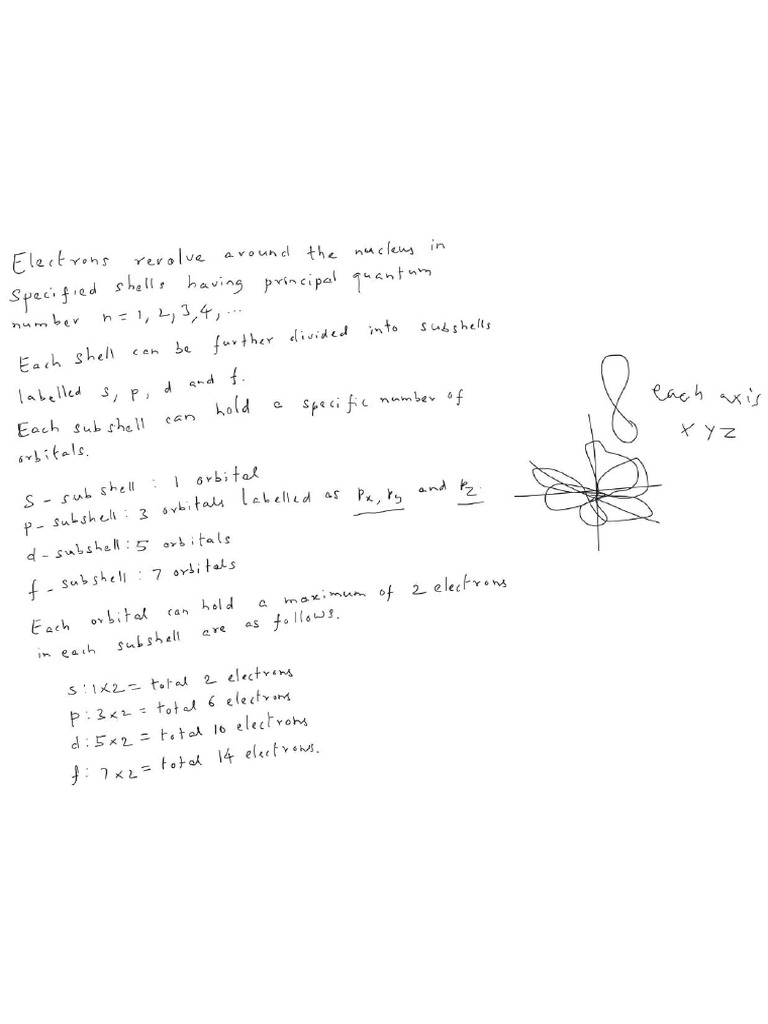 Electrons revolve around the nucleus in
specified shells having principal quantum
number n = 1, 2, 3, 4, ...
Each shell can be further divided into subshells
labelled s, p, d and f.
Each subshell can hold a specific number of
orbitals.
each axis
x y z
S - sub shell : 1 orbital
p - subshell : 3 orbitals labelled as Px, Py and Pz.
d - subshell : 5 orbitals
f - subshell : 7 orbitals
Each orbital can hold a maximum of 2 electrons
in each subshell are as follows.
s : 1 x 2 = total 2 electrons
p : 3 x 2 = total 6 electrons
d : 5 x 2 = total 10 electrons
f : 7 x 2 = total 14 electrons.